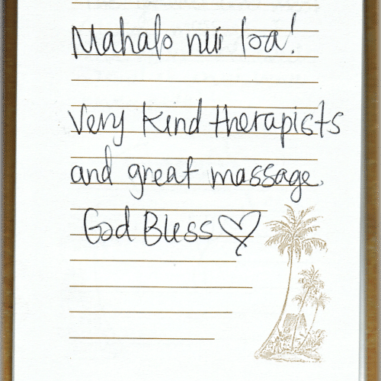 Mahalo nui loa!
Very kind therapists
and great massage.
God Bless♡